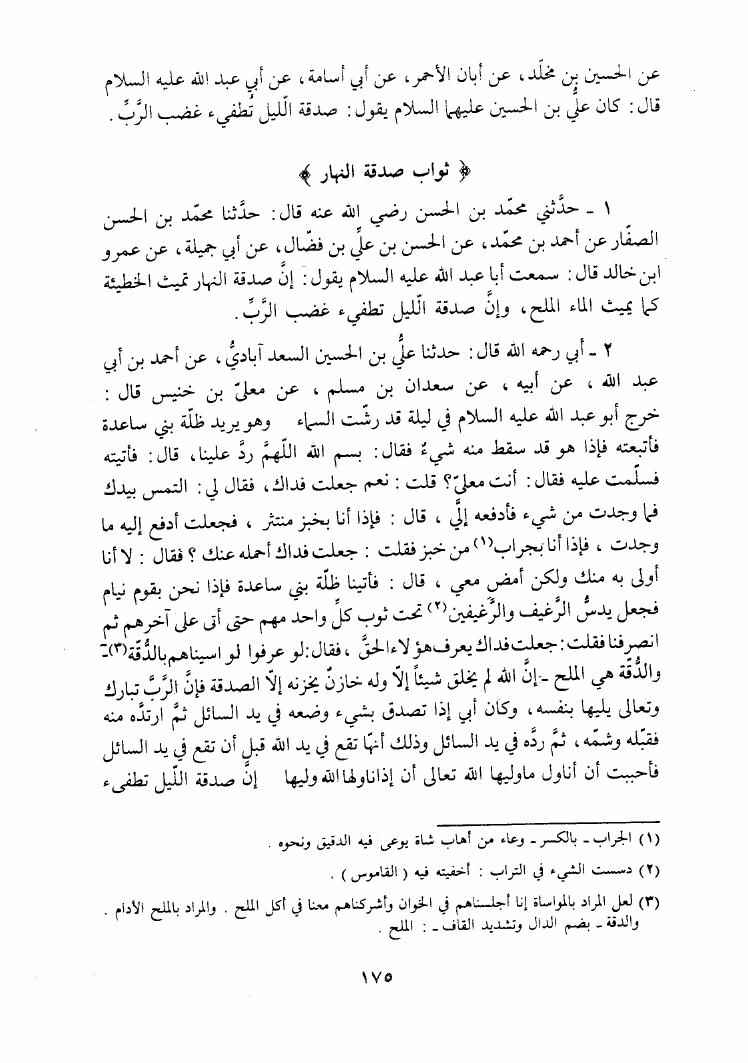 عن الحسين بن مخلّد، عن أبان الأحمر، عن أبي أسامة، عن أبي عبد الله عليه السلام
قال: كان عليُّ بن الحسين عليهما السلام يقول: صدقة الّليل تُطفيء غضب الرَّبِّ.
﴿ ثواب صدقة النهار ﴾
١ ـ حدَّثني محمّد بن الحسن رضي الله عنه قال: حدَّثنا محمّد بن الحسن
الصفّار عن أحمد بن محمّد، عن الحسن بن عليِّ بن فضّال، عن أبي جميلة، عن عمرو
ابن خالد قال: سمعت أبا عبد الله عليه السلام يقول: إنَّ صدقة النهار تميث الخطيئة
كما يميث الماء الملح، وإنَّ صدقة الّليل تطفيء غضب الرَّبِّ.
٢ ـ أبي رحمه الله قال: حدثنا عليُّ بن الحسين السعد آباديُّ، عن أحمد بن أبي
عبد الله ، عن أبيه ، عن سعدان بن مسلم ، عن معلىّ بن خنيس قال :
خرج أبو عبد الله عليه السلام في ليلة قد رشّت السماء وهو يريد ظلّة بني ساعدة
فأتبعته فإذا هو قد سقط منه شيءٌ فقال: بسم الله اللّهمَّ ردَّ علينا، قال: فأتيته
فسلّمت عليه فقال: أنت معلىّ؟ قلت: نعم جعلت فداك، فقال لي: التمس بيدك
فما وجدت من شيء فأدفعه إليَّ ، قال : فإذا أنا بخبز منتثر ، فجعلت أدفع إليه ما
وجدت ، فإذا أنا بجراب(١) من خبز فقلت : جعلت فداك أحمله عنك ؟ فقال : لا أنا
أولى به منك ولكن أمض معي ، قال : فأتينا ظلّة بني ساعدة فإذا نحن بقوم نيام
فجعل يدسُّ الرَّغيف والرَّغيفين(٢) تحت ثوب كلِّ واحد مهم حتى أتى على آخرهم ثم
انصرفنا فقلت: جعلت فداك يعرف هؤلاء الحقَّ ، فقال: لو عرفوا لو اسيناهم بالدُّقة(٣)ـ
والدُّقة هي الملح ـ إنَّ الله لم يخلق شيئاً إلّا وله خازنٌ يخزنه إلّا الصدقة فإنَّ الرَّبَّ تبارك
وتعالى يليها بنفسه، وكان أبي إذا تصدق بشيء وضعه في يد السائل ثمَّ ارتدَّه منه
فقبّله وشمّه، ثمَّ ردَّه في يد السائل وذلك أنهّا تقع في يد الله قبل أن تقع في يد السائل
فأحببت أن أناول ماوليها الله تعالى أن إذاناولها الله وليها إنَّ صدقة اللّيل تطفىء
(١) الجراب ـ بالكسر ـ وعاء من أهاب شاة يوعى فيه الدقيق ونحوه .
(٢) دسست الشيء في التراب : أخفيته فيه ( القاموس ) .
(٣) لعل المراد بالمواساة إنا أجلسناهم في الخوان وأشركناهم معنا في أكل الملح . والمراد بالملح الأدام .
والدقة ـ بضم الدال وتشديد القاف ـ : الملح .
١٧٥